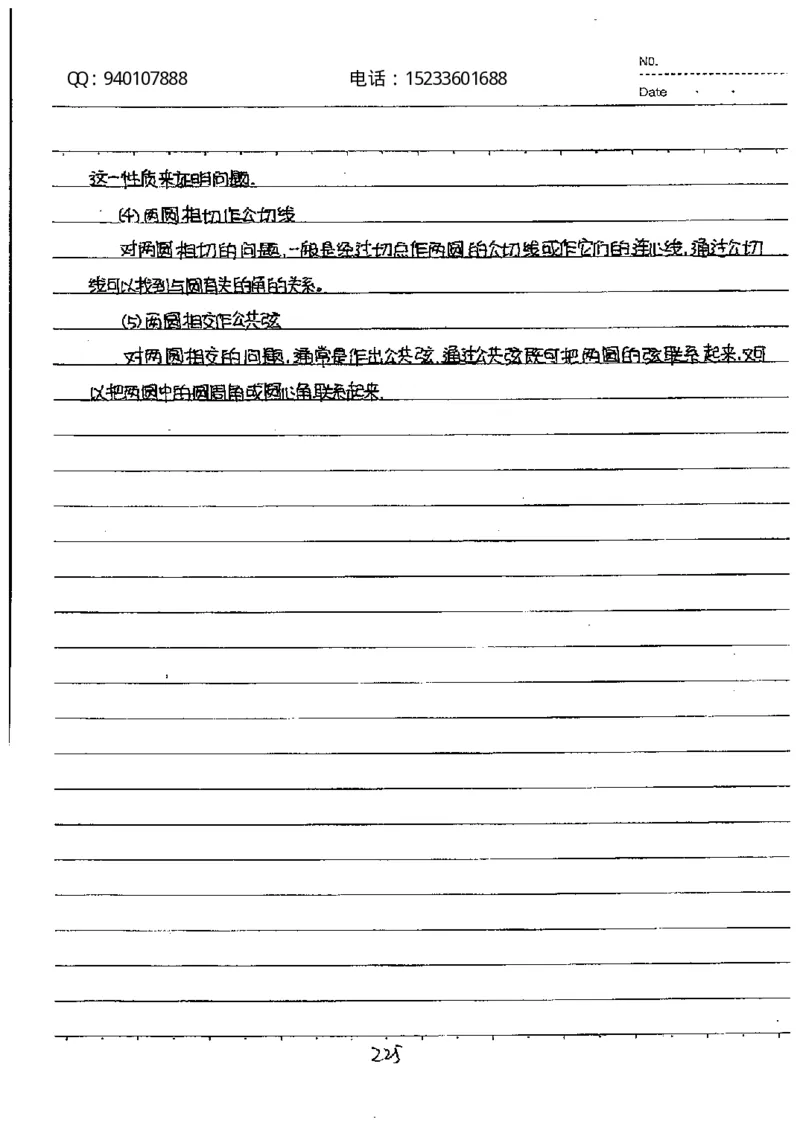 QQ：940107888 电话：15233601688 NO.
Date
这一性质来证明问题.
(4)两圆相切作公切线
对两圆相切的问题,一般是经过切点作两圆的公切线或作它们的连心线,通过公切
线可以找到与圆有关的角的关系。
(5)两圆相交作公共弦
对两圆相交的问题,通常是作出公共弦,通过公共弦既可把两圆的弦联系起来,又可
以把两圆中的圆周角或圆心角联系起来.
225